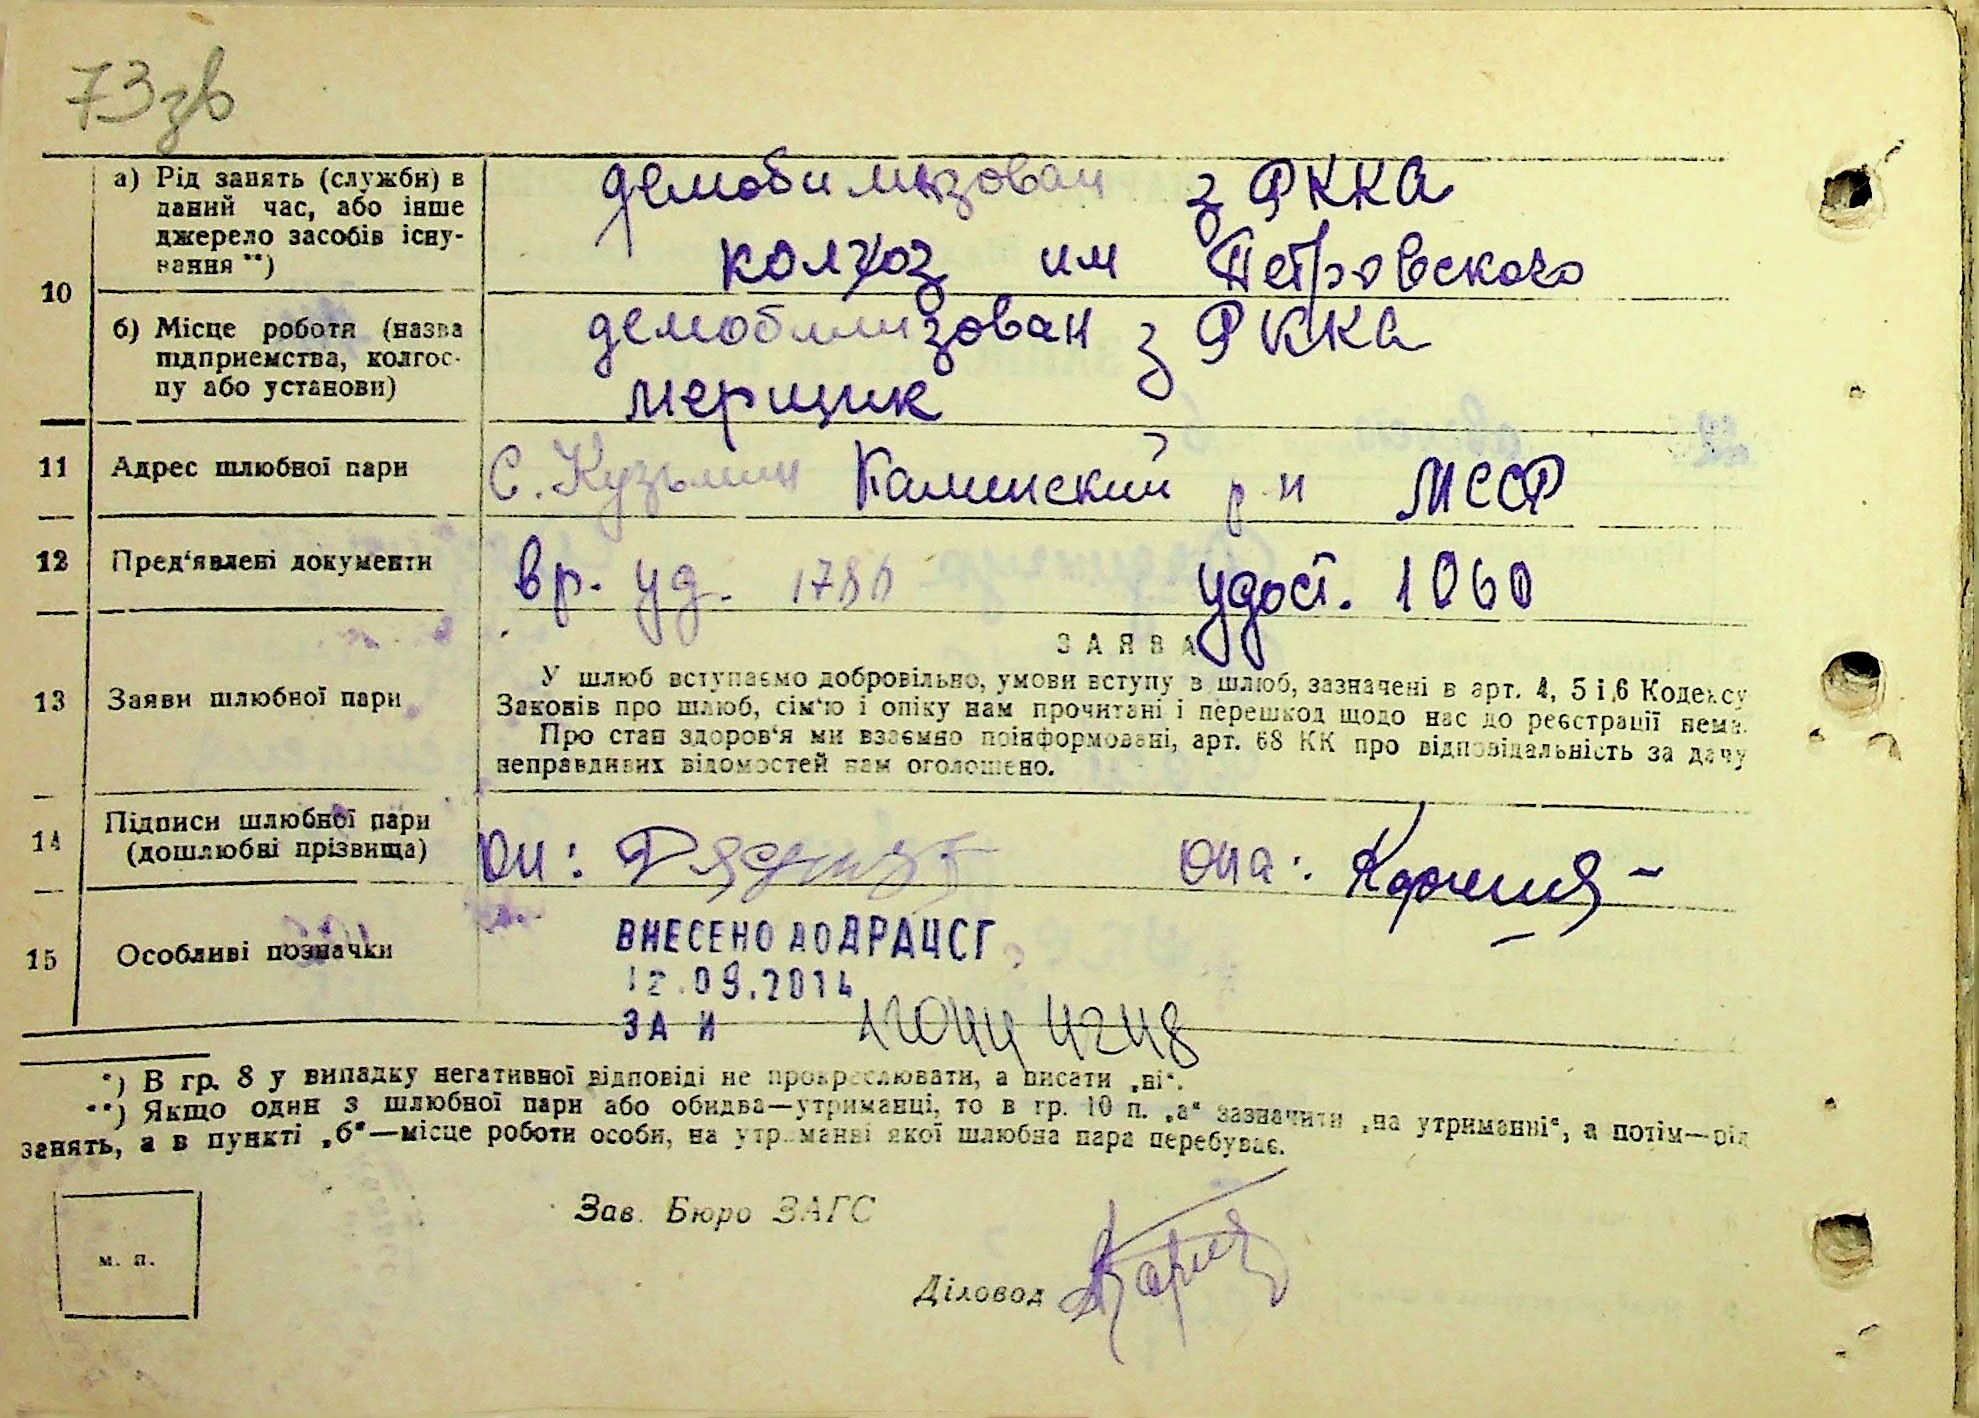 73зв
10
а) Рід занять (служби) в даний час, або інше джерело засобів існування **)
демобилизован з РККА
колхоз им Петровского
б) Місце роботи (назва підприємства, колгоспу або установи)
демобилизован з РККА
мерщик
11 Адрес шлюбної пари
С. Кузьмин Каменский р-н МССР
12 Пред'явлені документи
вр. уд. 1780 удост. 1060
13 Заяви шлюбної пари
ЗАЯВА
У шлюб вступаємо добровільно, умови вступу в шлюб, зазначені в арт. 4, 5 і 6 Кодексу
Законів про шлюб, сім'ю і опіку нам прочитані і перешкод щодо нас до реєстрації нема.
Про стан здоров'я ми взаємно поінформовані, арт. 68 КК про відповідальність за дачу
неправдивих відомостей нам оголошено.
14 Підписи шлюбної пари
(дошлюбні прізвища)
Он: Она:
15 Особливі позначки
ВНЕСЕНО ДО ДРАЦСГ
12.09.2014
ЗА И
*) В гр. 8 у випадку негативної відповіді не прокреслювати, а писати „ні".
**) Якщо один з шлюбної пари або обидва—утриманці, то в гр. 10 п. „а" зазначити „на утриманні", а потім—рід
занять, а в пункті „б"—місце роботи особи, на утриманні якої шлюбна пара перебуває.
м. п.
Зав. Бюро ЗАГС
Діловод